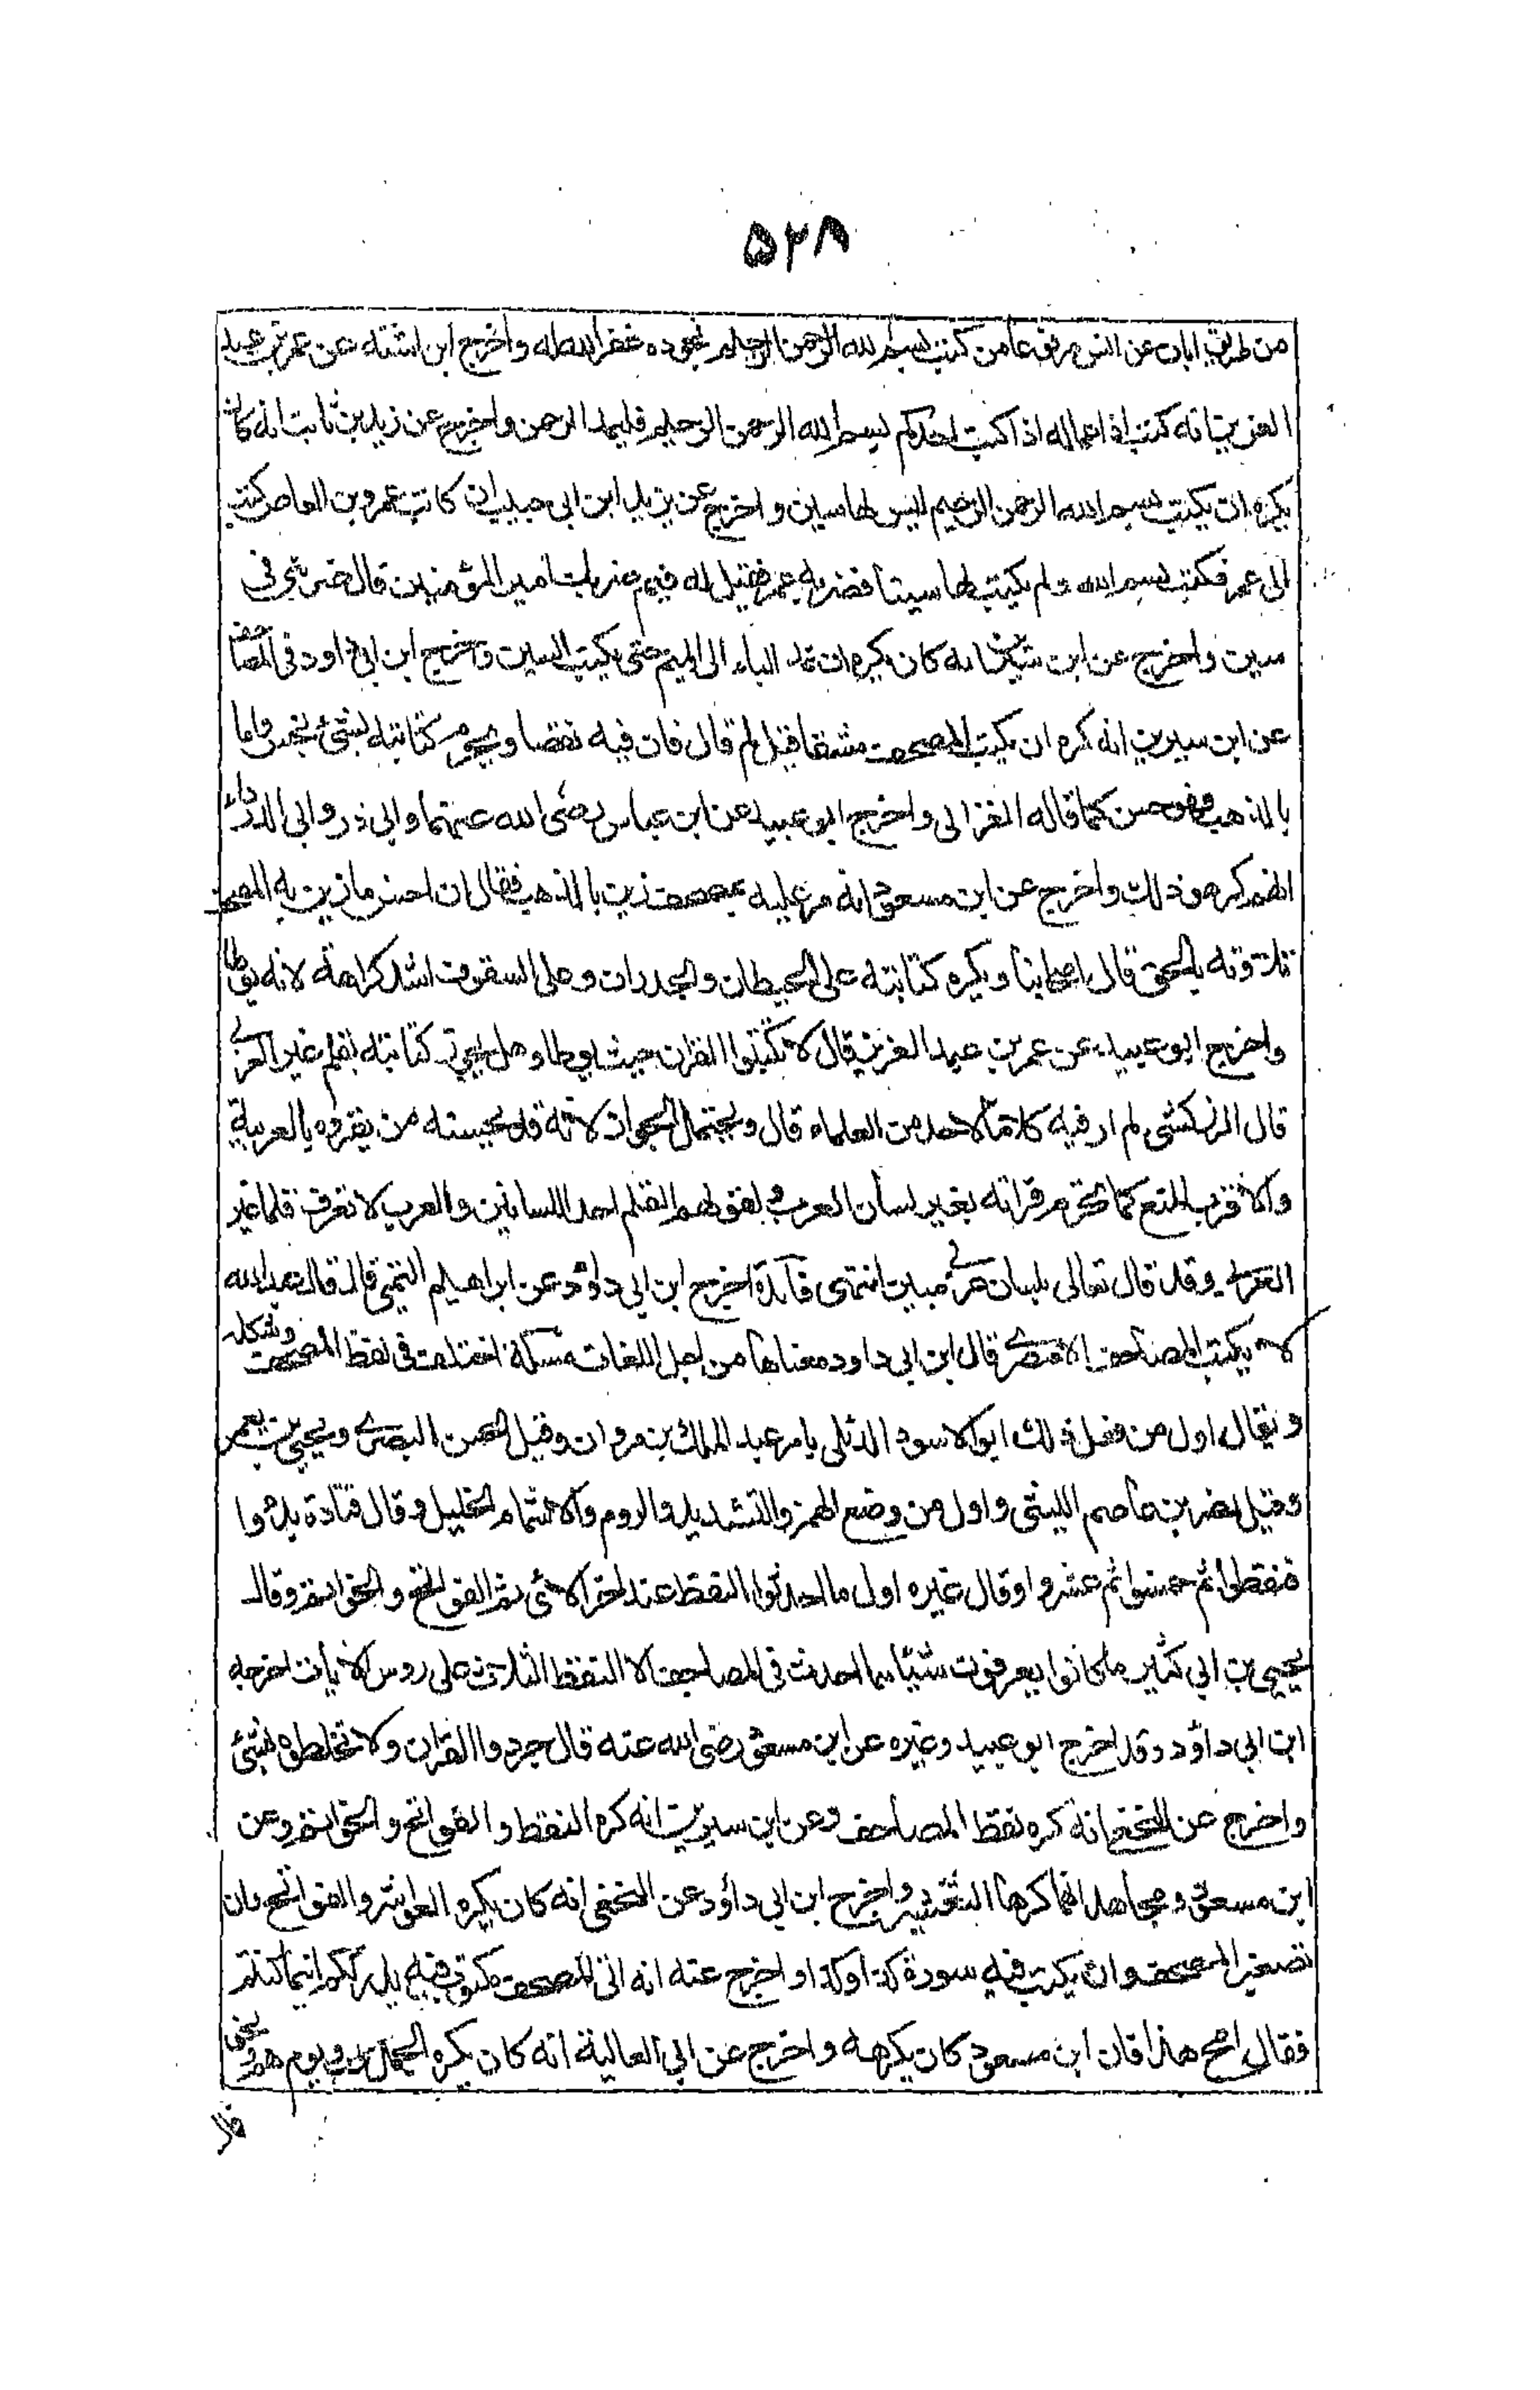 ۵۲۸
من طريق ابان عن انس مرفوعا من كتب بسم الله الرحمن الرحيم مجودة غفر الله له واخرج ابن اشته عن عمر بن عبد
العزيز انه كتب الى عماله اذا كتب احدكم بسم الله الرحمن الرحيم فليمد الرحمن واخرج عن زيد بن ثابت انه كان
يكره ان يكتب بسم الله الرحمن الرحيم ليس لها سين واخرج عن يزيد ابن ابى حبيب ان كاتب عمرو بن العاص كتب
الى عمر فكتب بسم الله ولم يكتب لها سينا فضربه عمر فقيل له فيم ضربك امير المؤمنين قال ضربنى فى
سين واخرج عن ابن سيرين انه كان يكره ان تمد الباء الى الميم حتى يكتب السين واخرج ابن ابى داود فى المصاحف
عن ابن سيرين انه كره ان يكتب المصحف مشقا قيل لم قال فان فيه نقصا ويحرم كتابته بشئ نجس واما
بالذهب فهو حسن كما قاله الغزالى واخرج ابو عبيد عن ابن عباس رضى الله عنهما وابى ذر وابى الدرداء
انهم كرهو ذلك واخرج عن ابن مسعود انه مر عليه بمصحف زين بالذهب فقال ان احسن ما زين به المصحف
تلاوته بالحق قال اصحابنا ويكره كتابته على الحيطان والجدران وعلى السقوف اشد كراهة لانه يوطأ
واخرج ابو عبيد عن عمر بن عبد العزيز قال لا تكتبوا القران حيث يوطا وهل يجوز كتابته بقلم غير العربى
قال الزركشى لم ار فيه كلاما لاحد من العلماء قال ويحتمل الجواز لانه قد يحسنه من يقرؤه بالعربية
والاقرب المنع كما تحرم قراته بغير لسان العرب ولقولهم القلم احد اللسانين والعرب لا تعرف قلما غير
العربى وقد قال تعالى بلسان عربى مبين انتهى فائدة اخرج ابن ابى داؤد عن ابراهيم التيمى قال قال عبد الله
لا يكتب المصاحف الا مضرى قال ابن ابى داود معناها من اجل اللغات مسئلة اختلف فى نقط المصحف وشكله
ويقال اول من فعل ذلك ابو الاسود الدئلى بامر عبد الملك بن مروان وقيل الحسن البصرى ويحيى بن يعمر
وقيل نصر بن عاصم الليثى واول من وضع الهمز والتشديد والروم والاشمام الخليل وقال قتادة بدءوا
فنقطوا ثم خمسوا ثم عشروا وقال غيره اول ما احدثوا النقط عند اخر الاى ثم الفواتح والخواتم وقال
يحيى بن ابى كثير ما كانوا يعرفون شيئا مما احدث فى المصاحف الا النقط الثلاث على روس الايات اخرجه
ابن ابى داؤد وقد اخرج ابو عبيد وغيره عن ابن مسعود رضى الله عنه قال جردوا القران ولا تخلطوه بشئ
واخرج عن النخعى انه كره نقط المصاحف وعن ابن سيرين انه كره النقط والفواتح والخواتم وعن
ابن مسعود ومجاهد انهما كرها التعشير واخرج ابن ابى داؤد عن النخعى انه كان يكره العواشر والفواتح وان
تصغير المصحف وان يكتب فيه سورة كذا وكذا واخرج عنه انه اتى المصحف مكتوب فيه
فقال امح هذا فان ابن مسعود كان يكرهه واخرج عن ابى العالية انه كان يكره الجمل